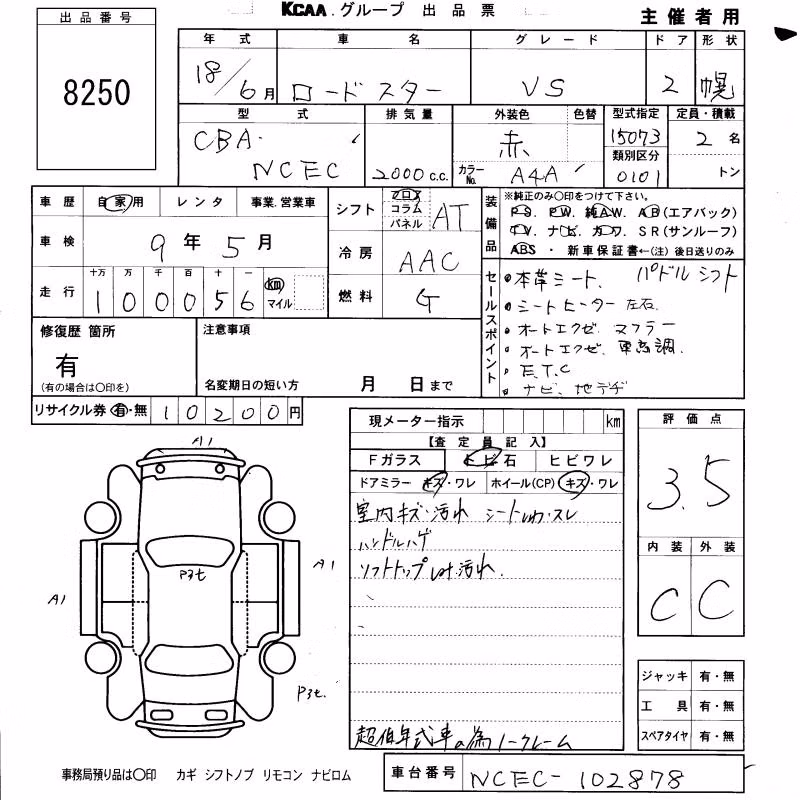 KCAA.グループ 出品票
主催者用
出品番号
8250
年式 車名 グレード ドア 形状
18/6月 ロードスター VS 2 幌
型式 排気量 外装色 色替 型式指定 定員・積載
CBA- NCEC 2000c.c. 赤 カラーNo. A4A 15073 2名
類別区分
0101 トン
車歴 自家用 レンタ 事業.営業車
車検 9年5月
走行 十万 万 千 百 十 一
100056 km マイル
シフト フロア コラム パネル AT
冷房 AAC
燃料 G
装備品
※純正のみ〇印をつけて下さい。
P S. P W. 純A W. A B(エアバック)
T V. ナ ビ. カ ワ. S R(サンルーフ)
ABS・新車保証書←(注)後日送りのみ
セールスポイント
・本革シート、 パドルシフト
・シートヒーター 左右.
・オートエクゼ. マフラー
・オートエクゼ. 車高調.
・E.T.C
・ナビ、地デヂ
修復歴 箇所
有
(有の場合は〇印を)
注意事項
名変期日の短い方 月 日まで
リサイクル券 有・無 10200円
現メーター指示 km
【査定員記入】
Fガラス トビ石 ヒビワレ
ドアミラー キズ・ワレ ホイール(CP) キズ・ワレ
室内キズ・汚れ シートしわ・スレ
ハンドルハゲ
ソフトトップしわ汚れ.
超低年式車の為ノークレーム
評価点
3.5
内装 外装
C C
A1
A1
P3t
A1
P3t.
ジャッキ 有・無
工具 有・無
スペアタイヤ 有・無
事務局預り品は〇印 カギ シフトノブ リモコン ナビロム
車台番号 NCEC-102878